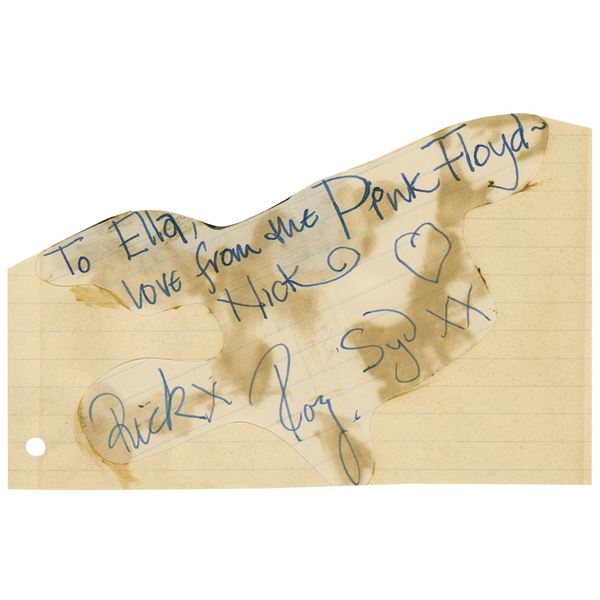 To Ella,
love from the Pink Floyd~
Nick
Syd xx
Rick x
Rog.